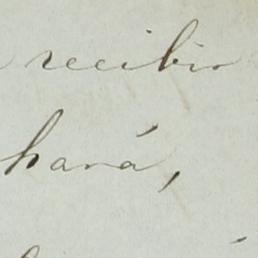 recibir
hará,